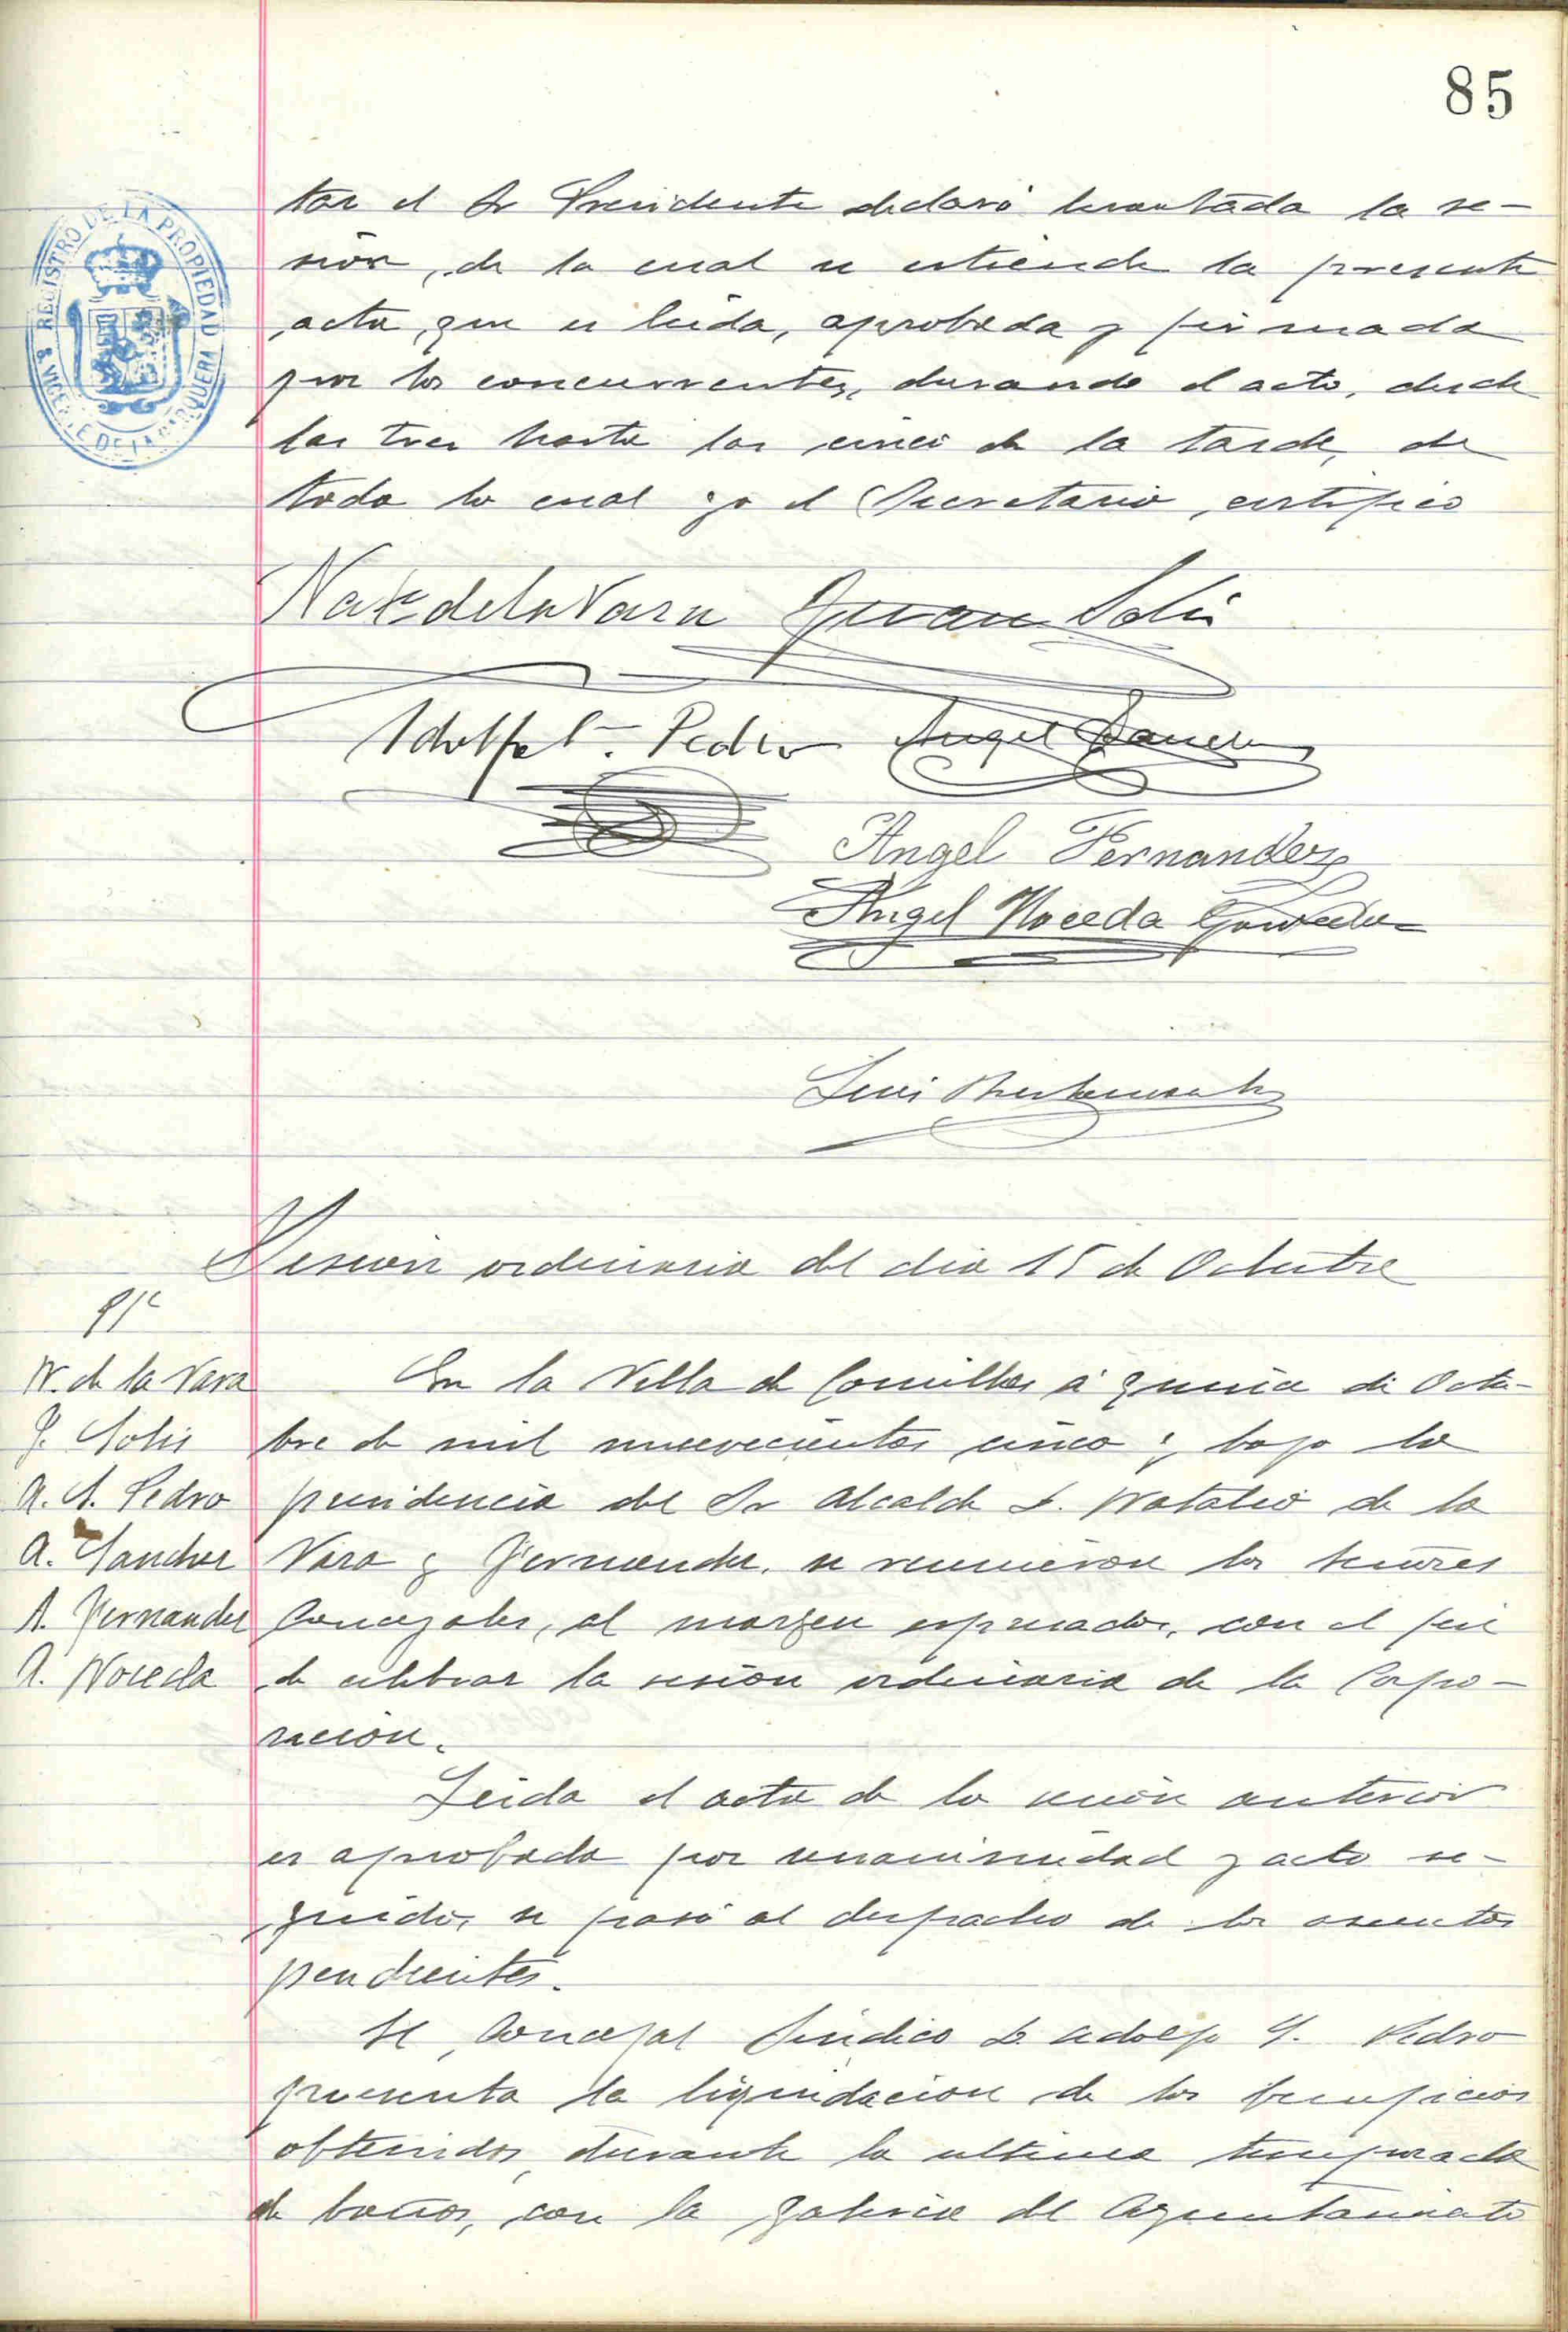 85
REGISTRO DE LA PROPIEDAD
S. VICENTE DE LA BARQUERA
tar el Sr Presidente declaró levantada la se-
sión, de la cual se estiende la presente
acta, que es leida, aprobada y firmada
por los concurrentes, durando el acto, desde
las tres hasta las cinco de la tarde, de
todo lo cual yo el Secretario, certifico
Nat. de la Vara Juan Solis
Adolfo Pedro Angel Sanchez
Angel Fernandez
Angel Noceda Gonzalez
Luis
Sesion ordinaria del dia 15 de Octubre
N. de la Vara
J. Solis
A. S. Pedro
A. Sanchez
A. Fernandez
A. Noceda
En la Villa de Comillas á quince de Octu-
bre de mil novecientos cinco y bajo la
presidencia del Sr Alcalde D. Natalio de la
Vara y Fernandez, se reunieron los señores
Concejales, al margen espresados, con el fin
de celebrar la sesion ordinaria de la Corpo-
racion.
Leida el acta de la sesión anterior
es aprobada por unanimidad y acto se-
guido, se pasó al despacho de los asuntos
pendientes.
El Concejal Sindico D. Adolfo S. Pedro
presenta la liquidacion de los beneficios
obtenidos, durante la ultima temporada
de baños, con la galeria del Ayuntamiento